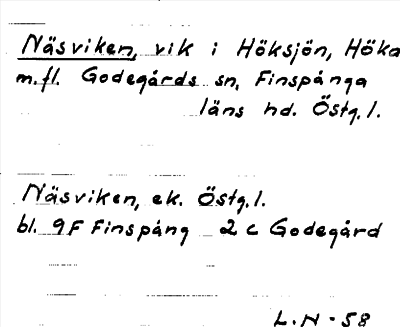 Näsviken, vik i Höksjön, Höka
m.fl. Godegårds sn, Finspånga
läns hd. Östg.l.
Näsviken, ek. Östg.l.
bl. 9F Finspång 2 c Godegård
L.N-58